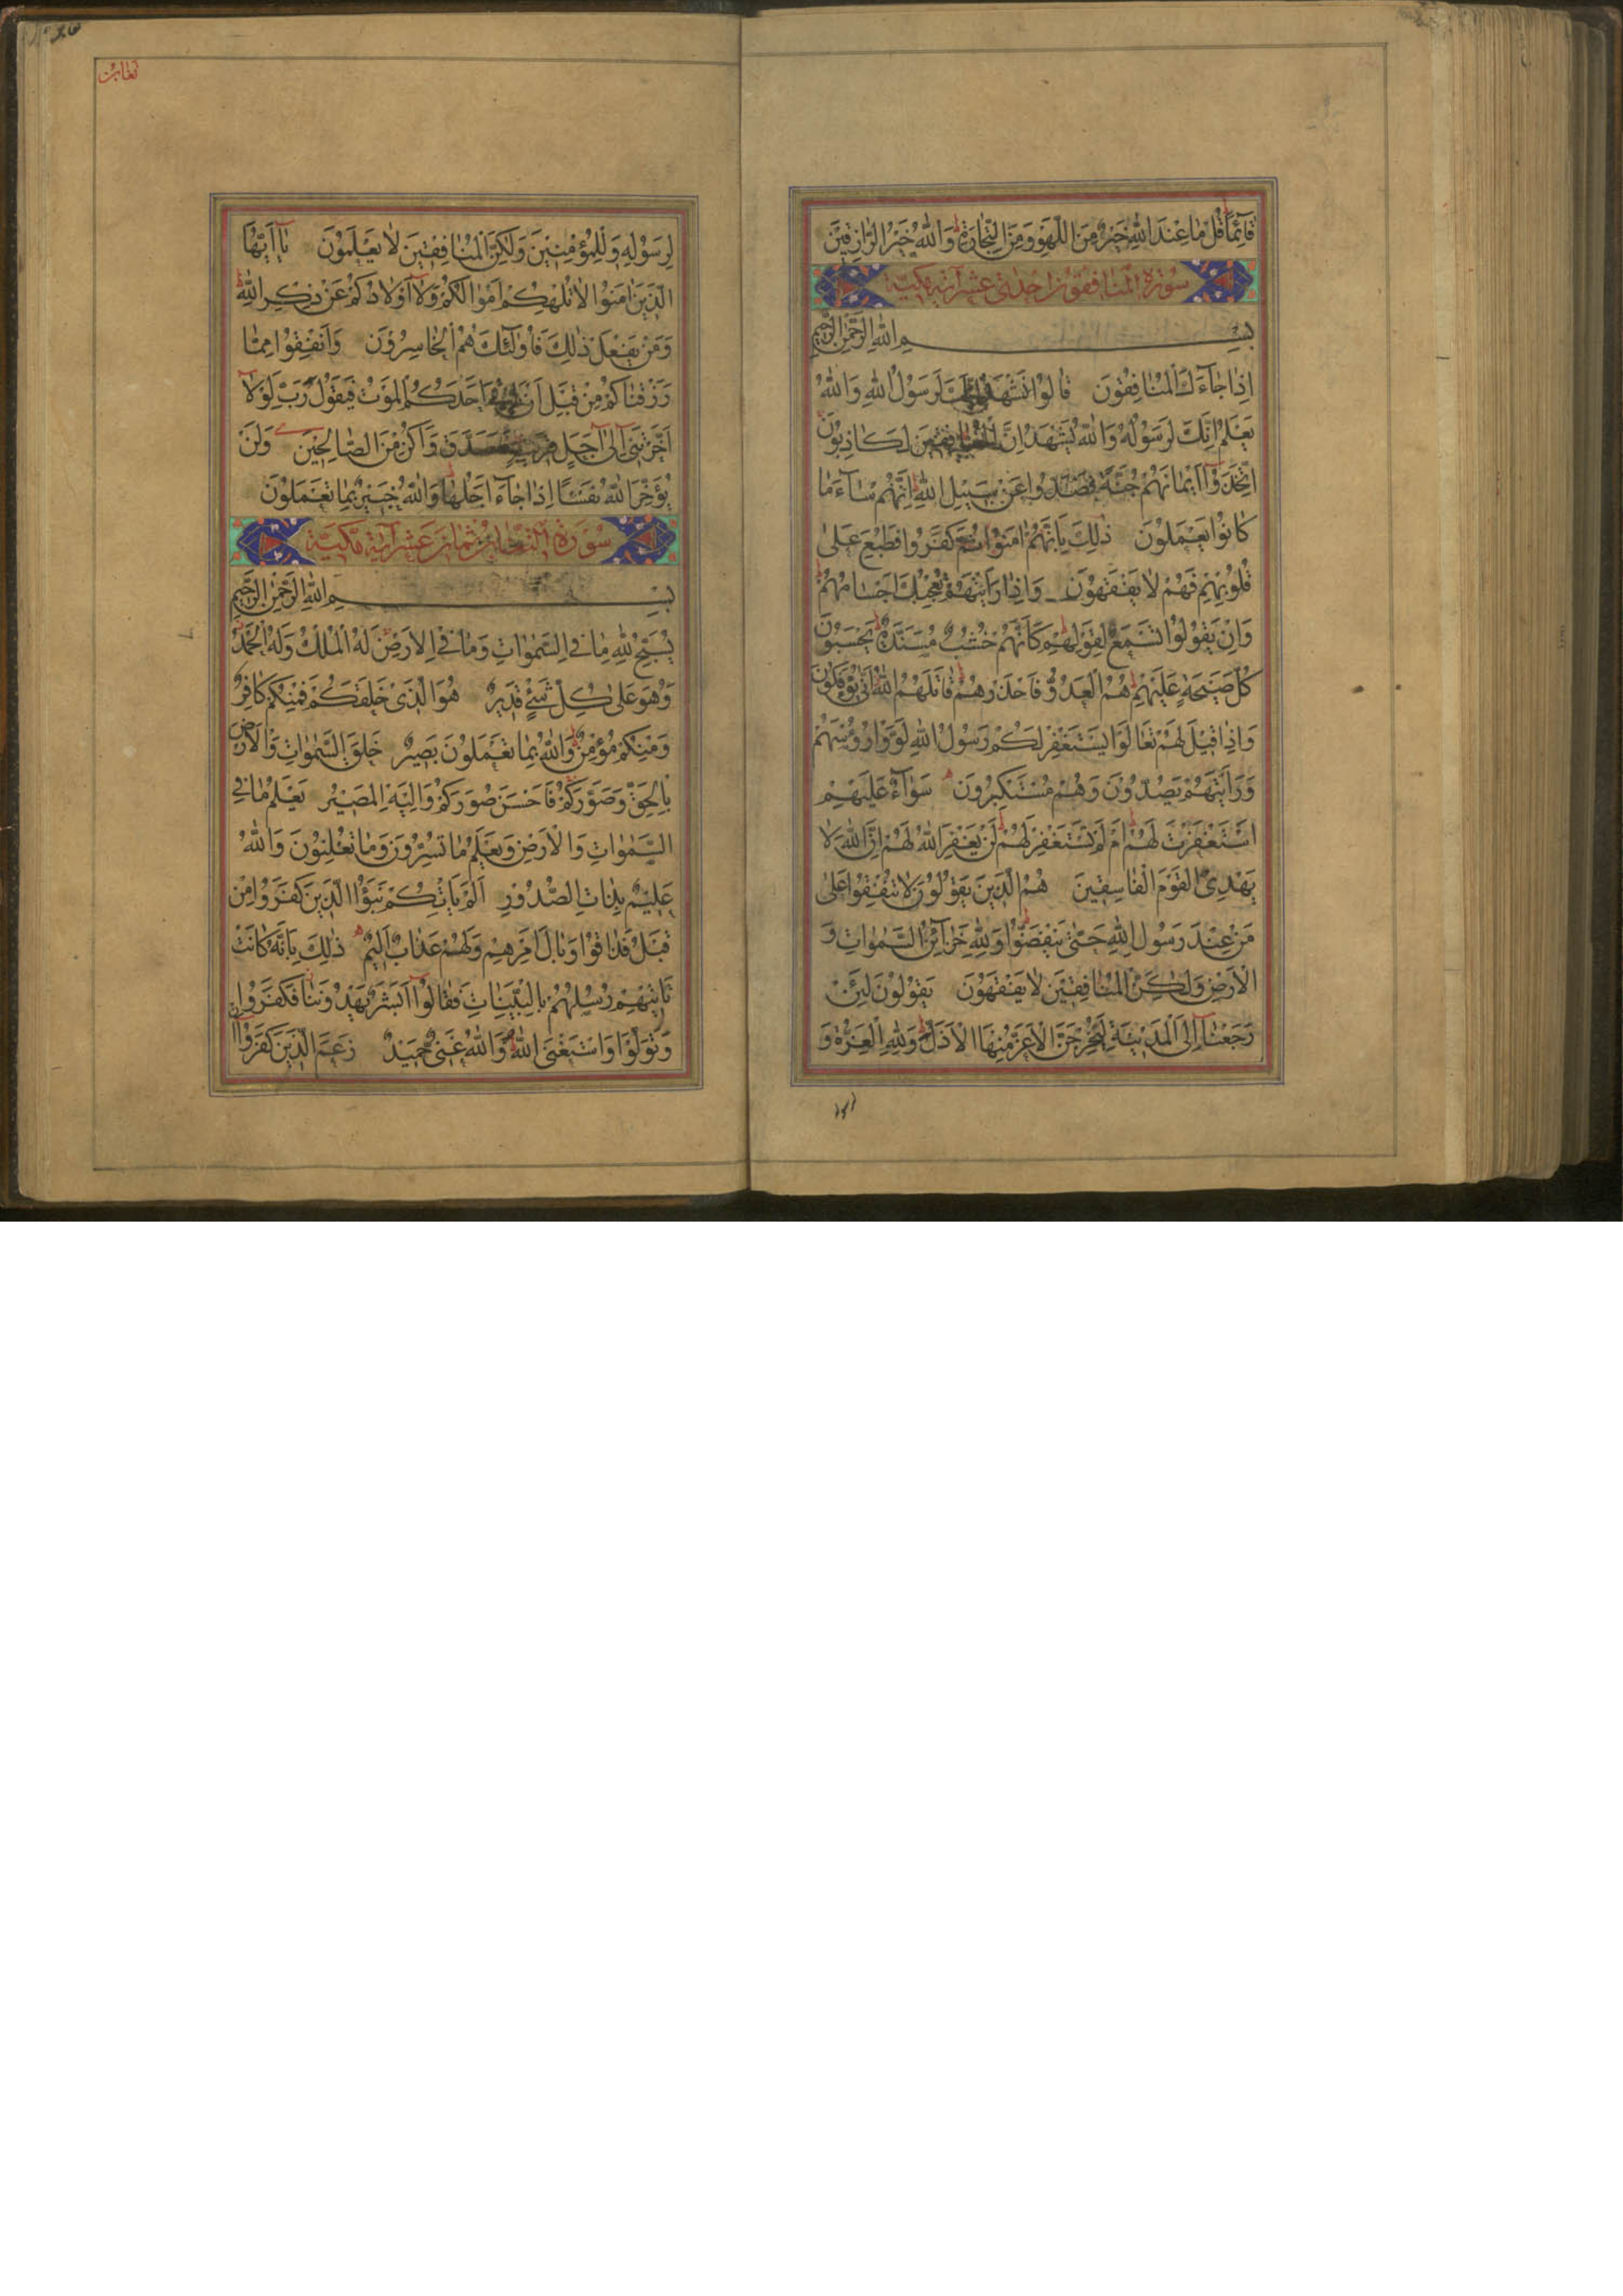 قَآئِمًا قُلْ مَا عِنْدَ اللّٰهِ خَيْرٌ مِنَ اللَّهْوِ وَمِنَ التِّجَارَةِ وَاللّٰهُ خَيْرُ الرَّازِقِيْنَ
سُوْرَةُ الْمُنَافِقُوْنَ اِحْدٰى عَشَرَ اٰيَة مَكِّيَّة
بِسْمِ اللّٰهِ الرَّحْمٰنِ الرَّحِيْمِ
اِذَا جَآءَكَ الْمُنَافِقُوْنَ قَالُوْا نَشْهَدُ اِنَّكَ لَرَسُوْلُ اللّٰهِ وَاللّٰهُ
يَعْلَمُ اِنَّكَ لَرَسُوْلُهُ وَاللّٰهُ يَشْهَدُ اِنَّ الْمُنَافِقِيْنَ لَكَاذِبُوْنَ
اِتَّخَذُوْآ اَيْمَانَهُمْ جُنَّةً فَصَدُّوْا عَنْ سَبِيْلِ اللّٰهِ اِنَّهُمْ سَآءَ مَا
كَانُوْا يَعْمَلُوْنَ ذٰلِكَ بِاَنَّهُمْ اٰمَنُوْا ثُمَّ كَفَرُوْا فَطُبِعَ عَلٰى
قُلُوْبِهِمْ فَهُمْ لَا يَفْقَهُوْنَ وَاِذَا رَاَيْتَهُمْ تُعْجِبُكَ اَجْسَامُهُمْ
وَاِنْ يَقُوْلُوْا تَسْمَعْ لِقَوْلِهِمْ كَاَنَّهُمْ خُشُبٌ مُسَنَّدَةٌ يَحْسَبُوْنَ
كُلَّ صَيْحَةٍ عَلَيْهِمْ هُمُ الْعَدُوُّ فَاحْذَرْهُمْ قَاتَلَهُمُ اللّٰهُ اَنّٰى يُؤْفَكُوْنَ
وَاِذَا قِيْلَ لَهُمْ تَعَالَوْا يَسْتَغْفِرْ لَكُمْ رَسُوْلُ اللّٰهِ لَوَّوْا رُؤُسَهُمْ
وَرَاَيْتَهُمْ يَصُدُّوْنَ وَهُمْ مُسْتَكْبِرُوْنَ سَوَآءٌ عَلَيْهِمْ
اَسْتَغْفَرْتَ لَهُمْ اَمْ لَمْ تَسْتَغْفِرْ لَهُمْ لَنْ يَغْفِرَ اللّٰهُ لَهُمْ اِنَّ اللّٰهَ لَا
يَهْدِى الْقَوْمَ الْفَاسِقِيْنَ هُمُ الَّذِيْنَ يَقُوْلُوْنَ لَا تُنْفِقُوْا عَلٰى
مَنْ عِنْدَ رَسُوْلِ اللّٰهِ حَتّٰى يَنْفَضُّوْا وَلِلّٰهِ خَزَآئِنُ السَّمٰوَاتِ وَ
الْاَرْضِ وَلٰكِنَّ الْمُنَافِقِيْنَ لَا يَفْقَهُوْنَ يَقُوْلُوْنَ لَئِنْ
رَجَعْنَآ اِلَى الْمَدِيْنَةِ لَيُخْرِجَنَّ الْاَعَزُّ مِنْهَا الْاَذَلَّ وَلِلّٰهِ الْعِزَّةُ وَ
تغابن
لِرَسُوْلِهِ وَلِلْمُؤْمِنِيْنَ وَلٰكِنَّ الْمُنَافِقِيْنَ لَا يَعْلَمُوْنَ يَآ اَيُّهَا
الَّذِيْنَ اٰمَنُوْا لَا تُلْهِكُمْ اَمْوَالُكُمْ وَلَآ اَوْلَادُكُمْ عَنْ ذِكْرِ اللّٰهِ
وَمَنْ يَفْعَلْ ذٰلِكَ فَاُولٰٓئِكَ هُمُ الْخَاسِرُوْنَ وَاَنْفِقُوْا مِمَّا
رَزَقْنَاكُمْ مِنْ قَبْلِ اَنْ يَاْتِيَ اَحَدَكُمُ الْمَوْتُ فَيَقُوْلَ رَبِّ لَوْلَآ
اَخَّرْتَنِيْ اِلٰى اَجَلٍ قَرِيْبٍ فَاَصَّدَّقَ وَاَكُنْ مِنَ الصَّالِحِيْنَ وَلَنْ
يُؤَخِّرَ اللّٰهُ نَفْسًا اِذَا جَآءَ اَجَلُهَا وَاللّٰهُ خَبِيْرٌ بِمَا تَعْمَلُوْنَ
سُوْرَةُ التَّغَابُنِ ثَمَانِ عَشَرَ اٰيَة مَكِّيَّة
بِسْمِ اللّٰهِ الرَّحْمٰنِ الرَّحِيْمِ
يُسَبِّحُ لِلّٰهِ مَا فِى السَّمٰوَاتِ وَمَا فِى الْاَرْضِ لَهُ الْمُلْكُ وَلَهُ الْحَمْدُ
وَهُوَ عَلٰى كُلِّ شَيْءٍ قَدِيْرٌ هُوَ الَّذِيْ خَلَقَكُمْ فَمِنْكُمْ كَافِرٌ
وَمِنْكُمْ مُؤْمِنٌ وَاللّٰهُ بِمَا تَعْمَلُوْنَ بَصِيْرٌ خَلَقَ السَّمٰوَاتِ وَالْاَرْضَ
بِالْحَقِّ وَصَوَّرَكُمْ فَاَحْسَنَ صُوَرَكُمْ وَاِلَيْهِ الْمَصِيْرُ يَعْلَمُ مَا فِى
السَّمٰوَاتِ وَالْاَرْضِ وَيَعْلَمُ مَا تُسِرُّوْنَ وَمَا تُعْلِنُوْنَ وَاللّٰهُ
عَلِيْمٌ بِذَاتِ الصُّدُوْرِ اَلَمْ يَاْتِكُمْ نَبَؤُا الَّذِيْنَ كَفَرُوْا مِنْ
قَبْلُ فَذَاقُوْا وَبَالَ اَمْرِهِمْ وَلَهُمْ عَذَابٌ اَلِيْمٌ ذٰلِكَ بِاَنَّهُ كَانَتْ
تَاْتِيْهِمْ رُسُلُهُمْ بِالْبَيِّنَاتِ فَقَالُوْآ اَبَشَرٌ يَهْدُوْنَنَا فَكَفَرُوْا
وَتَوَلَّوْا وَاسْتَغْنَى اللّٰهُ وَاللّٰهُ غَنِيٌّ حَمِيْدٌ زَعَمَ الَّذِيْنَ كَفَرُوْآ